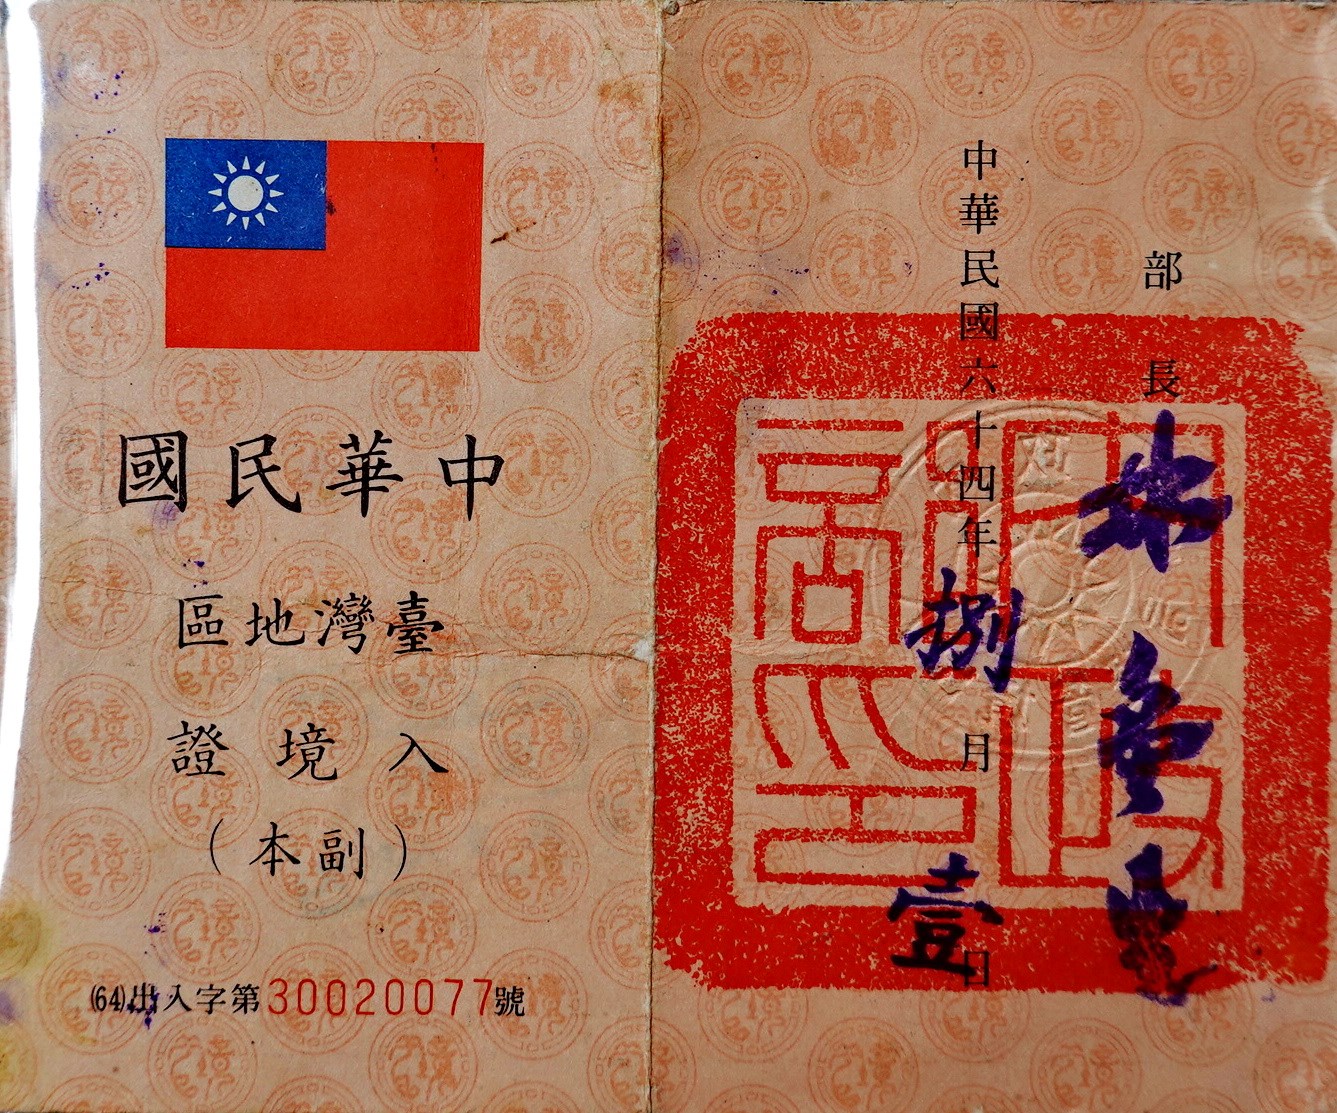 中華民國
臺灣地區
入境證
（副本）
(64)出入字第30020077號
部長 林金生
中華民國六十四年捌月壹日
內政部印